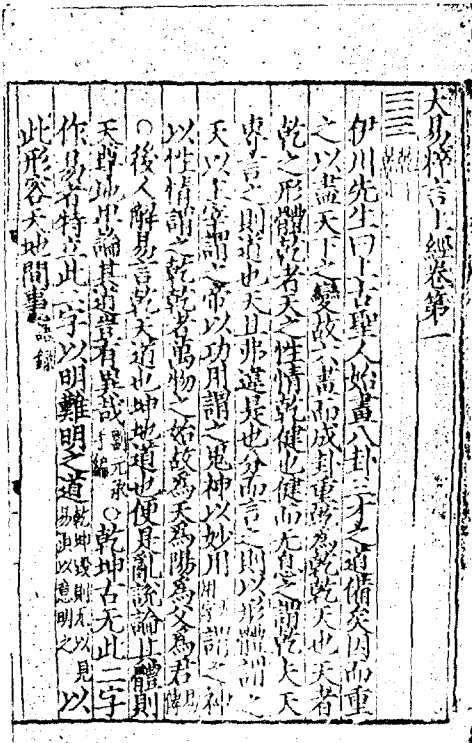 大易粹言上經卷第一
乾 乾
伊川先生曰上古聖人始畫八卦三才之道備矣因而重
之以盡天下之變故六畫而成卦重乾為乾乾天也天者
乾之形體乾者天之性情乾健也健而无息之謂乾夫天
專言之則道也天且弗違是也分而言之則以形體謂之
天以主宰謂之帝以功用謂之鬼神以妙用謂之神
以性情謂之乾乾者萬物之始故為天為陽為父為君
○後人解易言乾天道也坤地道也便是亂說論其體則
天尊地卑論其道豈有異哉劉元承手編○乾坤古无此二字
作易者特立此二字以明難明之道乾坤毀則无以見易須以意明之以
此形容天地間事語錄